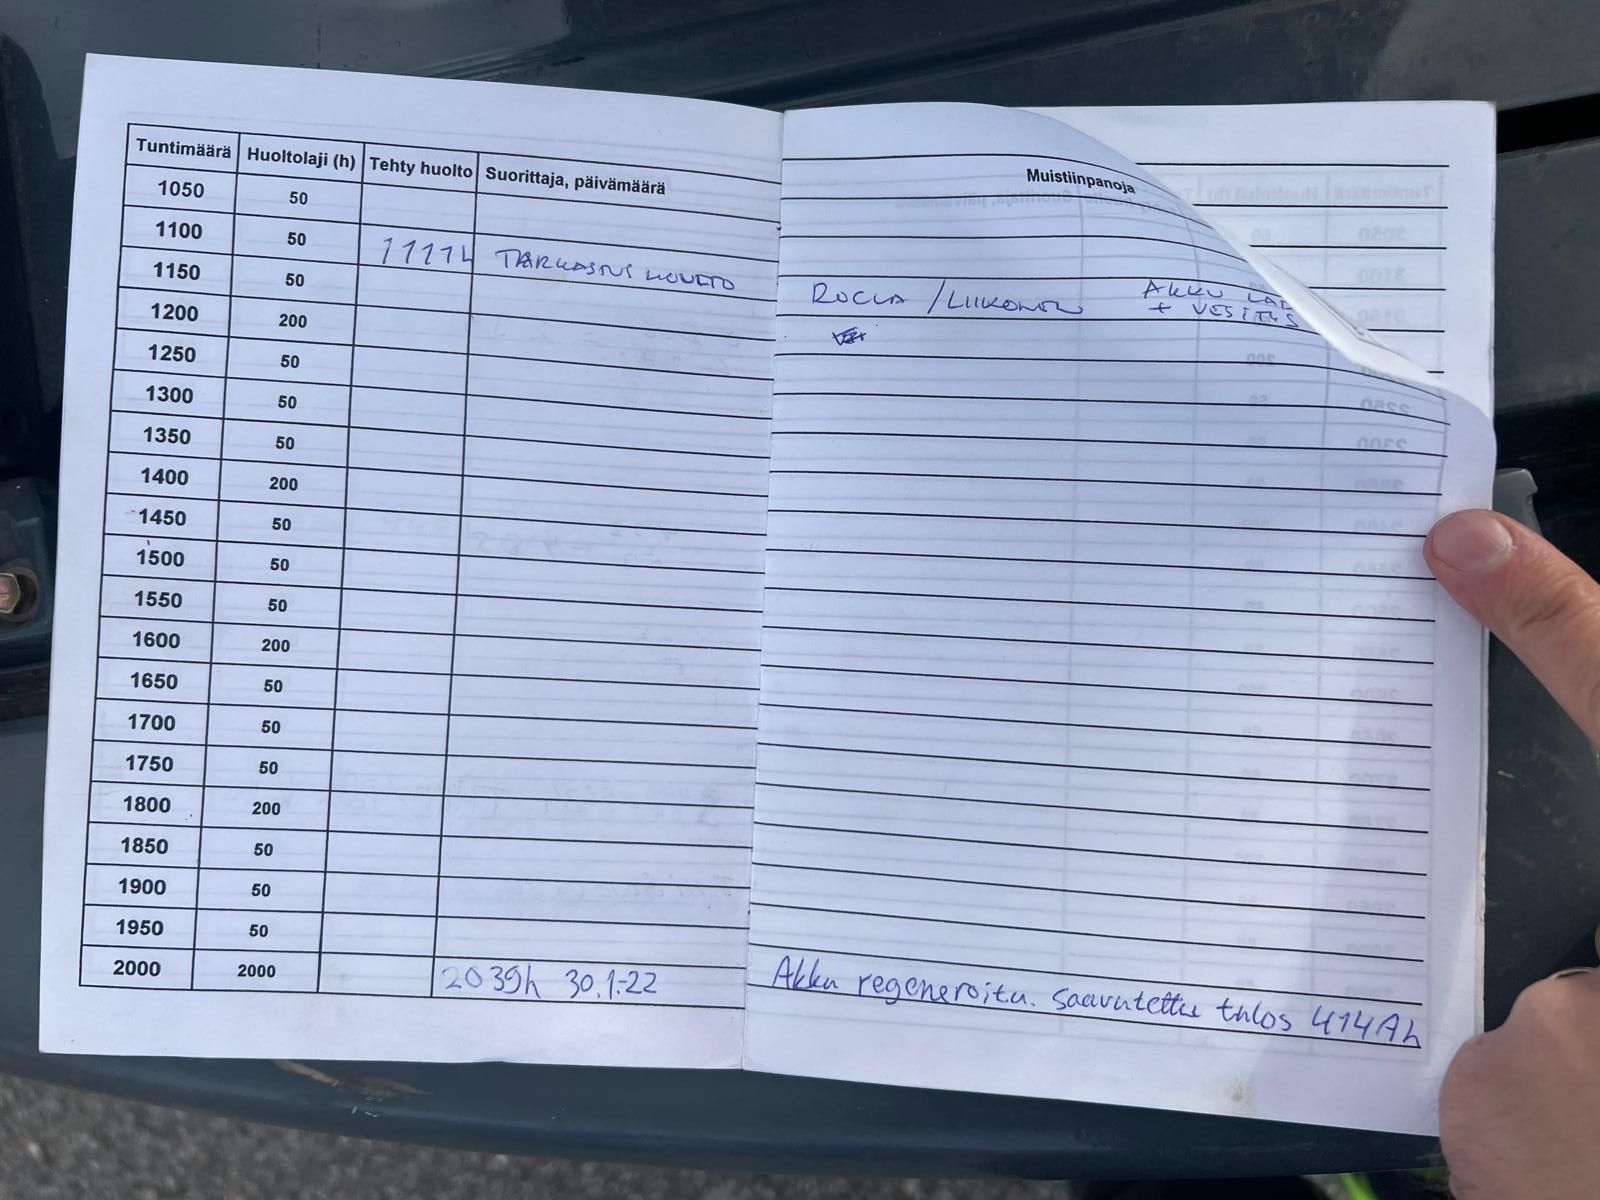 Tuntimäärä Huoltolaji (h) Tehty huolto Suorittaja, päivämäärä
1050 50
1100 50
1111h TARKASTUS HUOLTO
1150 50
1200 200
1250 50
1300 50
1350 50
1400 200
1450 50
1500 50
1550 50
1600 200
1650 50
1700 50
1750 50
1800 200
1850 50
1900 50
1950 50
2000 2000 2039h 30.1.22
Muistiinpanoja
ROCLA / LIIKONEN AKKU
+ VESITYS
Akku regeneroitu. saavutettu tulos 414Ah